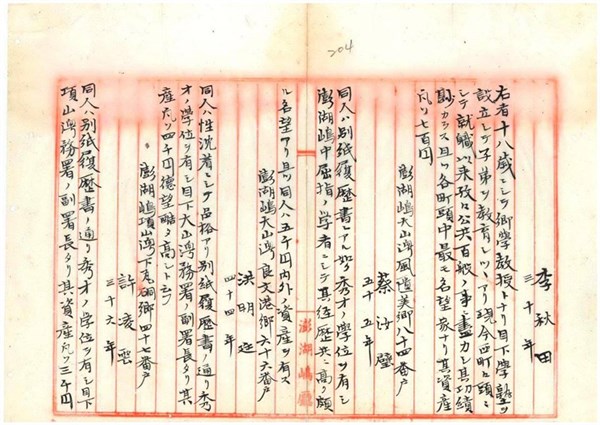 204
李秋田
三十年
右者十八歳ニシテ郷學教授トナリ目下學塾ヲ
設立シテ子弟ヲ教育シツヽアリ現今四町ニ頭ニ
シテ就職以来政々公共百般ノ事ニ盡力シ其功績
尠カラス且ツ各町頭中最モ名望家ナリ其資産
凡ソ七百円
澎湖嶋大山嶼風櫃美郷八十四番戸
蔡汝璧
五十五年
同人ハ別紙履歴書ニアル如ク秀才ノ學位ヲ有シ
澎湖嶋中屈指ノ學者ニシテ其徃歴共ニ高ク頗
ル名望アリ且ツ同人ハ五千円内外ノ資産ヲ有ス
澎湖嶋大山嶼良文港郷六十六番戸
洪明
四十四年
同人ハ性沈着ニシテ品格アリ別紙履歴書ノ通リ秀
才ノ學位ヲ有シ目下大山嶼務署ノ副署長タリ其
資産凡ソ四千円德望略々高シト云フ
澎湖嶋項山嶼下瓦硐郷四十七番戸
許凌雲
三十六年
同人ハ別紙履歴書ノ通リ秀才ノ學位ヲ有シ目下
項山嶼務署ノ副署長タリ其資産凡ソ三千円
澎湖嶋廳